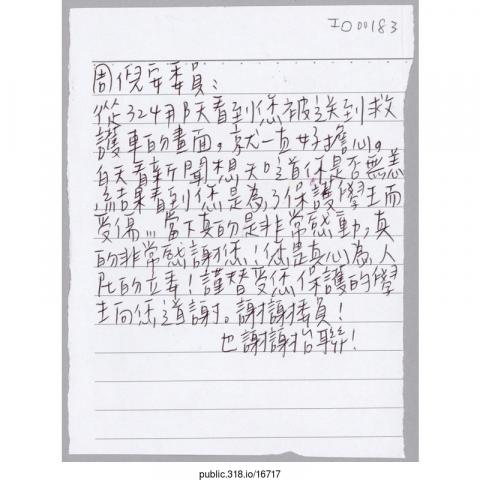 IO00183
周倪安委員：
從324那天看到您被送到救
護車的畫面，就一直好擔心。
每天看新聞想知道您是否無恙
，結果看到您是為了保護學生而
受傷…當下真的是非常感動，真
的非常感謝您！您是真心為人
民的立委！謹替受您保護的學
生向您道謝。謝謝委員！
也謝謝台聯！
public.318.io/16717